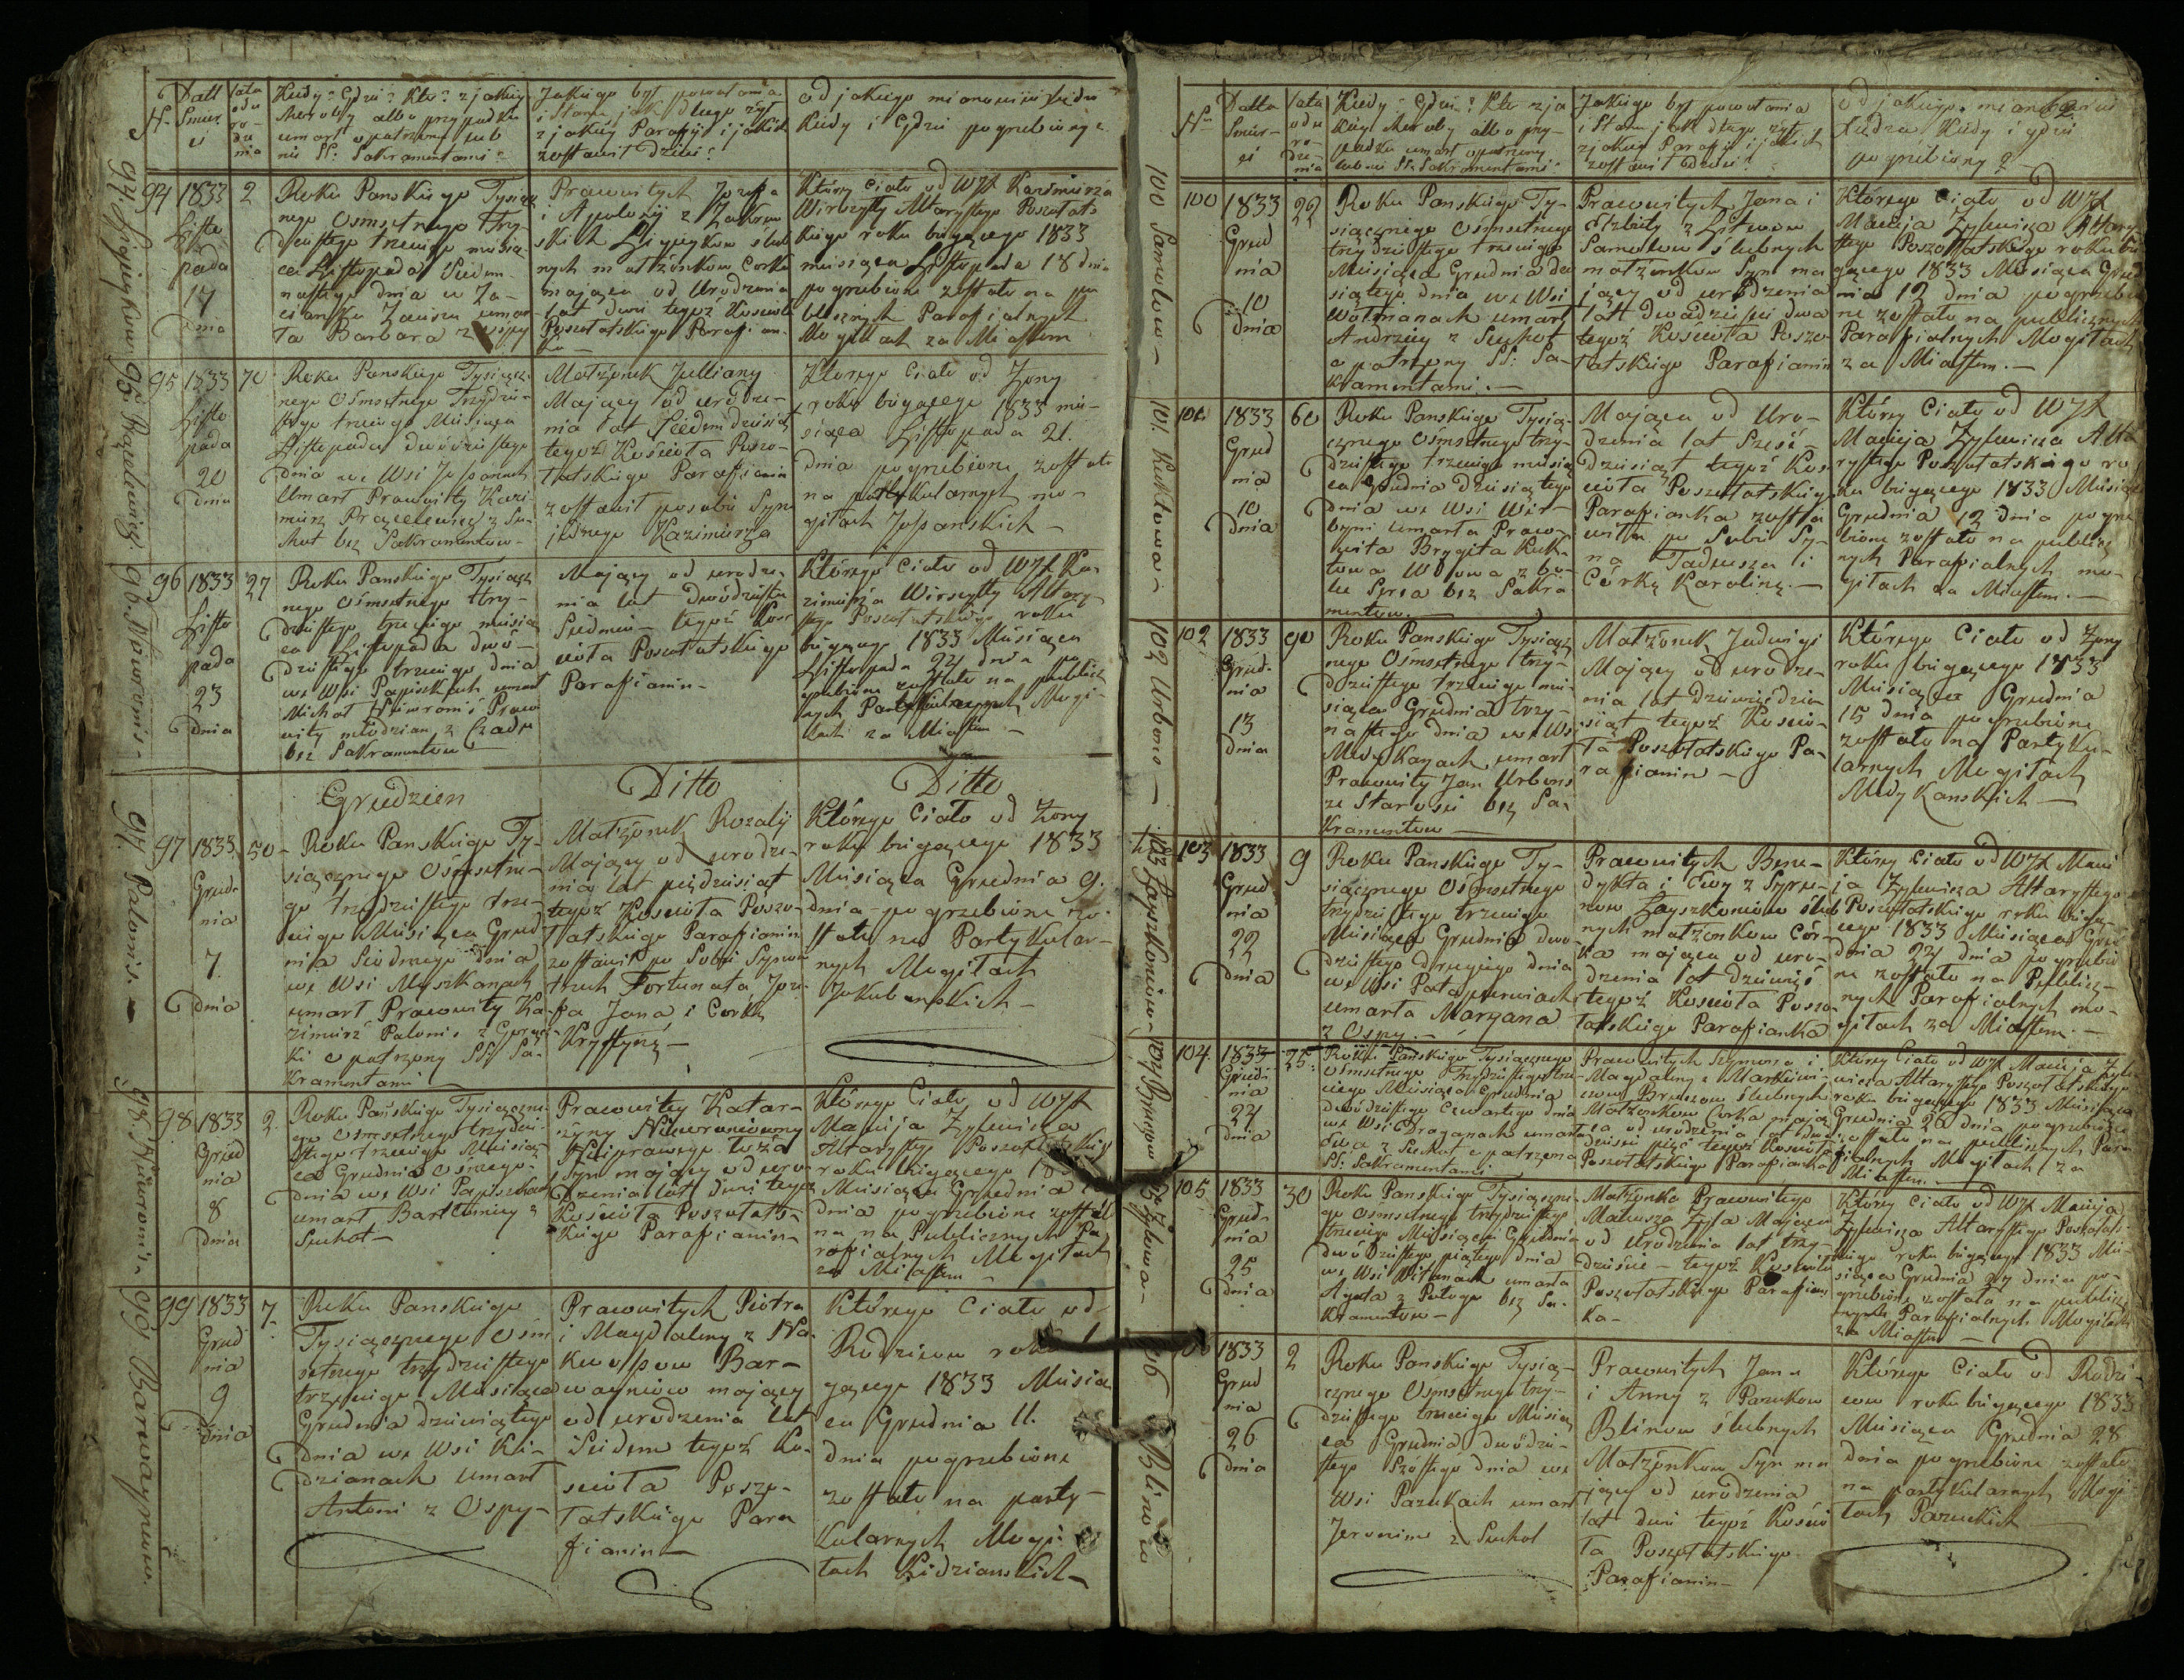 N.
Datt Śmierci
Lata od urodzenia
Kiedy? Gdzie? Kto? z jakiey
choroby albo przypadku
umarł opatrzony lub
nie SS: Sakramentami?
Jakiego był powołania
i Stanu jak długo żył
z jakiey Parafii i jakich
zostawił dzieci?
od jakiego mianowicie Xiędza
Kiedy i Gdzie pogrzebiony?
94
1833
Listo
pada
17
dnia
2
Roku Panskiego Tysiącz
nego Osmsetnego trzy-
dziestego trzeciego miesią
ca Listopada Siedm-
nastego dnia w Za-
umar
ła Barbara z ospy
Prawowitych Jozefa
i Apolonij z
skich slub
nych małżonkow Corka
mająca od Urodzenia
lat dwie tegoż Kościoła
Poszołatskiego Parafian-
ka
Ktorey Ciało od WJX Kazimierza
Wirszyłły Altarystego Poszołats
kiego roku bieżącego 1833
miesiąca Listopada 18 dnia
pogrzebione zostało na pu
blicznych Parafialnych
Mogiłkach za Miastem
95
1833
Listo
pada
20
dnia
70
Roku Panskiego Tysiącz-
nego Osmsetnego Trzydzie-
stego trzeciego Miesiąca
Listopada dwódziestego
dnia we Wsi
Umarł Prawowity Kazi-
mierz Prącelewicz z Su-
chot bez Sakramentow-
Małżonek Julliany
Mający od urodze-
nia lat Siedmdziesiąt
tegoż Kościoła Poszo-
łatskiego Parafianin
zostawił po sobie Syna
jednego Kazimierza
Ktorego Ciało od Zony
roku bieżącego 1833 mie-
siąca Listopada 21.
dnia pogrzebione zostało
na partykularnych mo-
giłach
96
1833
Listo
pada
23
dnia
27
Roku Panskiego Tysiącz
nego Osmsetnego trzy-
dziestego trzeciego miesią
ca Listopada dwó-
dziestego trzeciego dnia
we Wsi Papiszkach umarł
Michał Niewronis Prawo
wity młodzian z Czadu
bez Sakramentow
Mający od urodze-
nia lat Dwódzieście
Siedm- tegoż Kos
cioła Poszołatskiego
Parafianin-
Ktorego Ciało od WJX Ka-
zimierza Wirszyłły Altary
stego Poszołatskiego roku
bieżącego 1833 Miesiąca
Listopada 24 dnia po
grzebione zostało na publicz
nych Mogi-
łach za Miastem -
Grudzien
Ditto
Ditto
97
1833
Grud-
nia
7.
dnia
50-
Roku Panskiego Ty-
siącznego Osmsetne-
go trzydziestego trze-
ciego Miesiąca Grud
nia Siódmego dnia
we Wsi Myszkanach
umarł Prawowity Ka-
zimierz Palonis z Gorącz-
ki opatrzony SS: Sa-
kramentami
Małżonek Rozalij
Mający od urodze-
nia lat pięćdziesiąt
tegoż Kościoła Poszo-
łatskiego Parafianin
zostawił po Sobie Synow
trzech Fortunata Joze-
fa Jana i Corkę
Krystynę-
Ktorego Ciało od Zony
roku bieżącego 1833
Miesiąca Grudnia 9.
dnia pogrzebione zo-
stało na Partykular-
nych Mogiłach
Jakubanskich-
98
1833
Grud
nia
8
dnia
2.
Roku Pańskiego Tysiączne-
go Osmsetnego trzydzie-
stego trzeciego Miesią
ca Grudnia osmego-
dnia we Wsi Papiszkach
umarł Bartłomiey z
Suchot-
Prawowitey Katar-
zyny Niewroniowny
Nieprawego łoża
Syn mający od uro-
dzenia lat dwie tegoż
Kościoła Poszołats-
kiego Parafianin-
Ktorego Ciało od WJX
Macieja Żylewicza
Altarysty
roku bieżącego
Miesiąca Grudnia
dnia pogrzebione
na Publicznych Pa-
rafialnych Mogiłach
za Miastem
99
1833
Grud
nia
9
dnia
7-
Roku Panskiego
Tysiącznego Osm
setnego trzydziestego
trzeciego Miesiąca
Grudnia dziewiątego
dnia we Wsi Ki-
dzianach umarł
Antoni z Ospy-
Prawowitych Piotra
i Magdaleny z
Bar-
waynisow mający
od urodzenia lat
Siedem tegoż Ko-
scioła Poszo-
łatskiego Para
fianin-
Ktorego Ciało od-
Rodzicow
gącego 1833 Miesia
ca Grudnia 11.
dnia pogrzebione
zostało na party-
kularnych Mogi-
łach Kidzianskich-
N
Datta
Smier-
ci
Lata
od u
ro-
dze-
nia
Kiedy? Gdzie? Kto z ja
kiey choroby albo przy-
padku umarł opatrzony
lub nie SS: Sakramentami
Jakiego był powołania
i Stanu jak długo żył
z jakiey Parafii i jakich
zostawił dzieci?
od jakiego
Xiędza Kiedy i gdzie
pogrzebiony?
100 Samolow-
100
1833
Grud
nia
10
dnia
22
Roku Panskiego Ty-
siącznego Osmsetnego
trzydziestego trzeciego
Miesiąca Grudnia dzie
siątego dnia we Wsi
Wołmanach umarł
Andrzey z Suchot
opatrzony SS: Sa-
kramentami.-
Prawowitych Jana i
Elzbiety z Litwinow
Samolow ślubnych
małżonkow Syn ma
jący od urodzenia
latt dwadzieście dwa
tegoż Kościoła Poszo
łatskiego Parafianin
Ktorego Ciało od WJX
Macieja Żylewicza Altary
stego Poszołatskiego roku bie
gącego 1833 Miesiąca Grud
nia 12 dnia pogrzebio
ne zostało na publicznych
Parafialnych Mogiłach
za Miastem.-
101 Kuktowa-
101.
1833
Grud
nia
10
dnia
60
Roku Panskiego Tysią-
cznego Osmsetnego trzy-
dziestego trzeciego miesią
ca Grudnia dziesiątego
dnia we Wsi Wir-
umarła Prawo-
wita Brygita Kuk-
towa Wdowa z bo-
lu Serca bez Sakra
mentow.-
Mająca od Uro-
dzenia lat Sześć-
dziesiąt tegoż Kos
cioła Poszołatskiego
Parafianka zosta
wiła po Sobie Sy-
na Tadeusza i
Córkę Karolinę.-
Ktorey Ciało od WJX
Macieja Żylewicza Alta
rystego Poszołatskiego ro
ku bieżącego 1833 Miesiąca
Grudnia 12 dnia pogrze
bione zostało na publicz
nych Parafialnych mo-
giłach za Miastem.-
102 Urbono-
102
1833
Grud-
nia
13
dnia
90
Roku Panskiego Tysiącz
nego Osmsetnego trzy-
dziestego trzeciego mie-
siąca Grudnia trzy-
nastego dnia we Wsi
umarł
Prawowity Jan Urbons
ze Starosci bez Sa-
kramentow
Małżonek Jadwigi
Mający od urodze-
nia lat Dziewiędzie
siąt tegoż Koscio-
ła Poszołatskiego Pa-
rafianin-
Ktorego Ciało od Zony
roku bieżącego 1833
Miesiąca Grudnia
15 dnia pogrzebione
zostało na Partyku-
larnych Mogiłach
103
1833
Grud
nia
22
dnia
9
Roku Panskiego Ty-
siącznego Osmsetnego
trzydziestego trzeciego
Miesiąca Grudnia dwu-
dziestego drugiego dnia
we Wsi
umarła Maryana
z Ospy.-
Prawowitych Bene-
dykta i Ewy z
slub
nych małżonkow Cór-
ka mająca od uro-
dzenia lat dziewięć
tegoż Kościoła Poszo
łatskiego Parafianka
Ktorey Ciało od WJX Macie
ja Żylewicza Altarystego
Poszołatskiego roku bieżą
cego 1833 Miesiąca Gru
dnia 24 dnia pogrzebio
ne zostało na Publicz-
nych Parafialnych mo-
giłach za Miastem.-
104
1833
Grud-
nia
24
dnia
25.
Roku Pańskiego Tysiącznego
Osmsetnego Trzydziestego trze-
ciego Miesiąca Grudnia
dwódziestego Czwartego dnia
we Wsi Draganach umarła
Ewa z Suchot opatrzona
SS: Sakramentami
Prawowitych Szymona i
Magdaleny z
ślubnych
Małżonkow Corka mają
ca od urodzenia lat dwa-
dzieście pięć tegoż Kościoła
Poszołatskiego Parafianka
Ktorey Ciało od WJX Macieja Żyle
wicza Altarystego Poszołatskiego
roku bieżącego 1833 Miesiąca
Grudnia 26 dnia pogrzebione
zostało na publicznych Para
fialnych Mogiłach za
Miastem.
105
1833
Grud-
nia
25
dnia
30
Roku Panskiego Tysiączne-
go osmsetnego trzydziestego
trzeciego Miesiąca Grudnia
dwódziestego piątego dnia
we Wsi Witanach umarła
Agata z Pologu bez Sa-
kramentow-
Małżonka Prawowitego
Mateusza Żyla Mająca
od Urodzenia lat trzy-
dzieście - tegoż Kościoła
Poszołatskiego Parafian
ka-
Ktorey Ciało od WJX Macieja
Żylewicza Altarystego Poszołats-
kiego roku bieżącego 1833 Mie-
siąca Grudnia 27 dnia po-
grzebione zostało na publicz
nych Parafialnych Mogiłach
za Miastem
1833
Grud
nia
26
dnia
2
Roku Panskiego Tysią-
cznego Osmsetnego trzy-
dziestego trzeciego Miesią
ca Grudnia dwódzie-
stego Szóstego dnia we
Wsi Pazukach umarł
Jeronim z Suchot
Prawowitych Jana
i Anny z Pazukow
Blinow ślubnych
Małżonkow Syn ma
jący od urodzenia
lat dwie tegoż Kościo
ła Poszołatskiego
Parafianin-
Ktorego Ciało od Rodzi-
cow roku bieżącego 1833
Miesiąca Grudnia 28
dnia pogrzebione zostało
na partykularnych Mogi-
łach Pazuckich